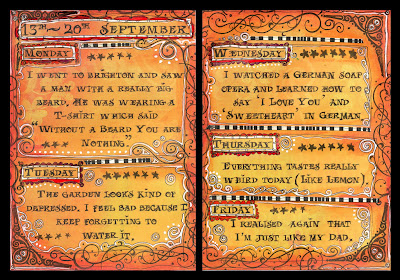 13TH~20TH SEPTEMBER
MONDAY
I WENT TO BRIGHTON AND SAW
A MAN WITH A REALLY BIG
BEARD. HE WAS WEARING A
T-SHIRT WHICH SAID
"WITHOUT A BEARD YOU ARE
NOTHING"
TUESDAY
THE GARDEN LOOKS KIND OF
DEPRESSED. I FEEL BAD BECAUSE I
KEEP FORGETTING TO
WATER IT.
WEDNESDAY
I WATCHED A GERMAN SOAP
OPERA AND LEARNED HOW TO
SAY 'I LOVE YOU' AND
'SWEETHEART' IN GERMAN
THURSDAY
EVERYTHING TASTES REALLY
WEIRD TODAY (LIKE LEMON).
FRIDAY
I REALISED AGAIN THAT
I'M JUST LIKE MY DAD.